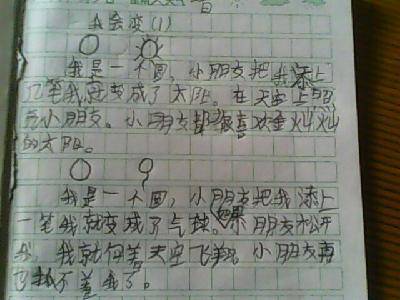 我会变(1)
我是一个圆，小朋友把我添上
几笔我就变成了太阳。在天空上照
着小朋友。小朋友都很喜欢金灿灿
的太阳。
我是一个圆，小朋友把我添上
一笔我就变成了气球。如果朋友松开
我，我就向着天空飞翔。小朋友再
也找不着我了。